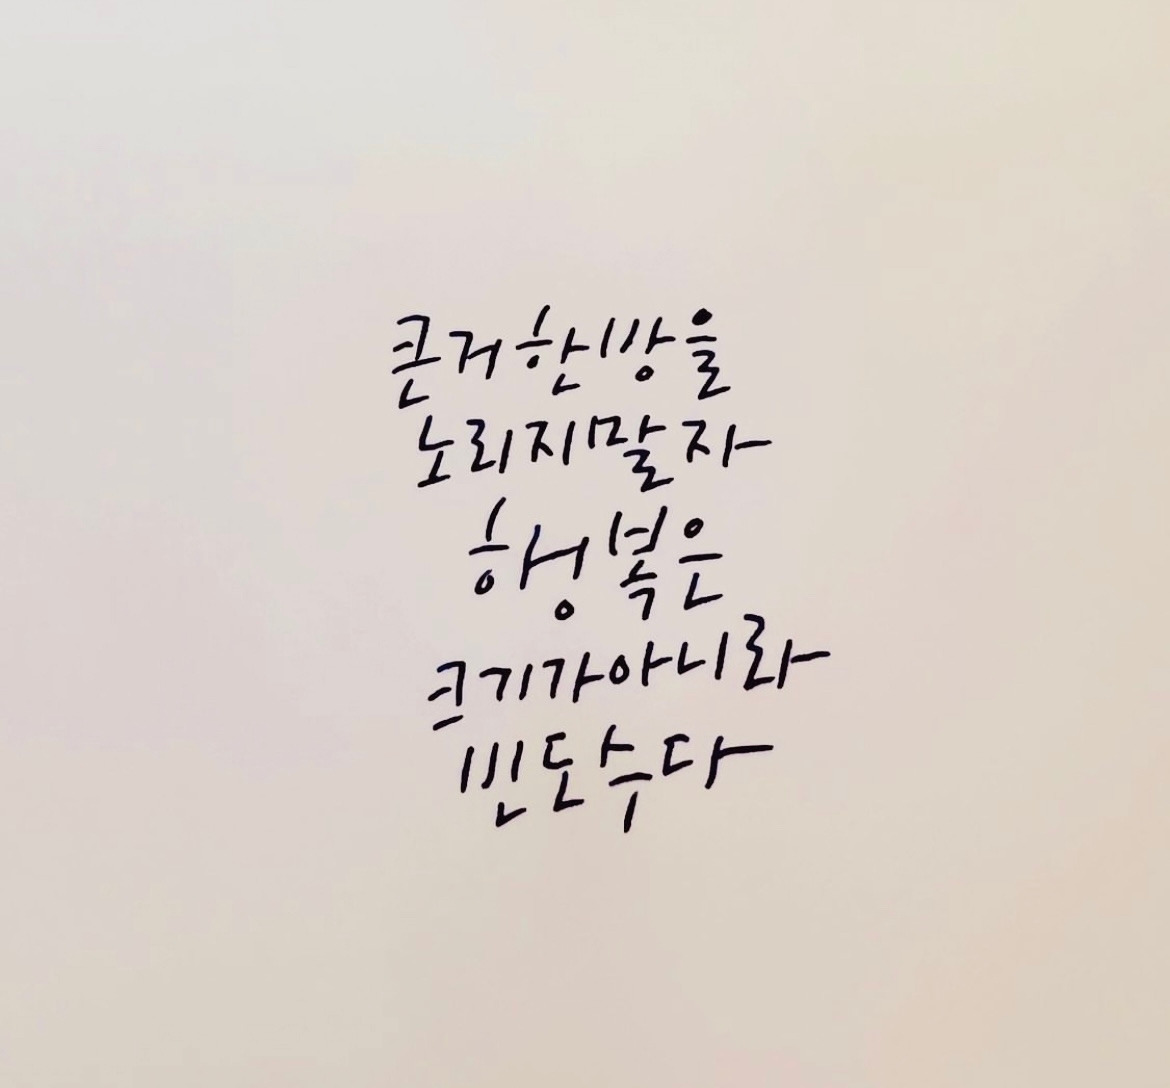 큰거 한방을
노리지말자
행복은
크기가아니라
빈도수다